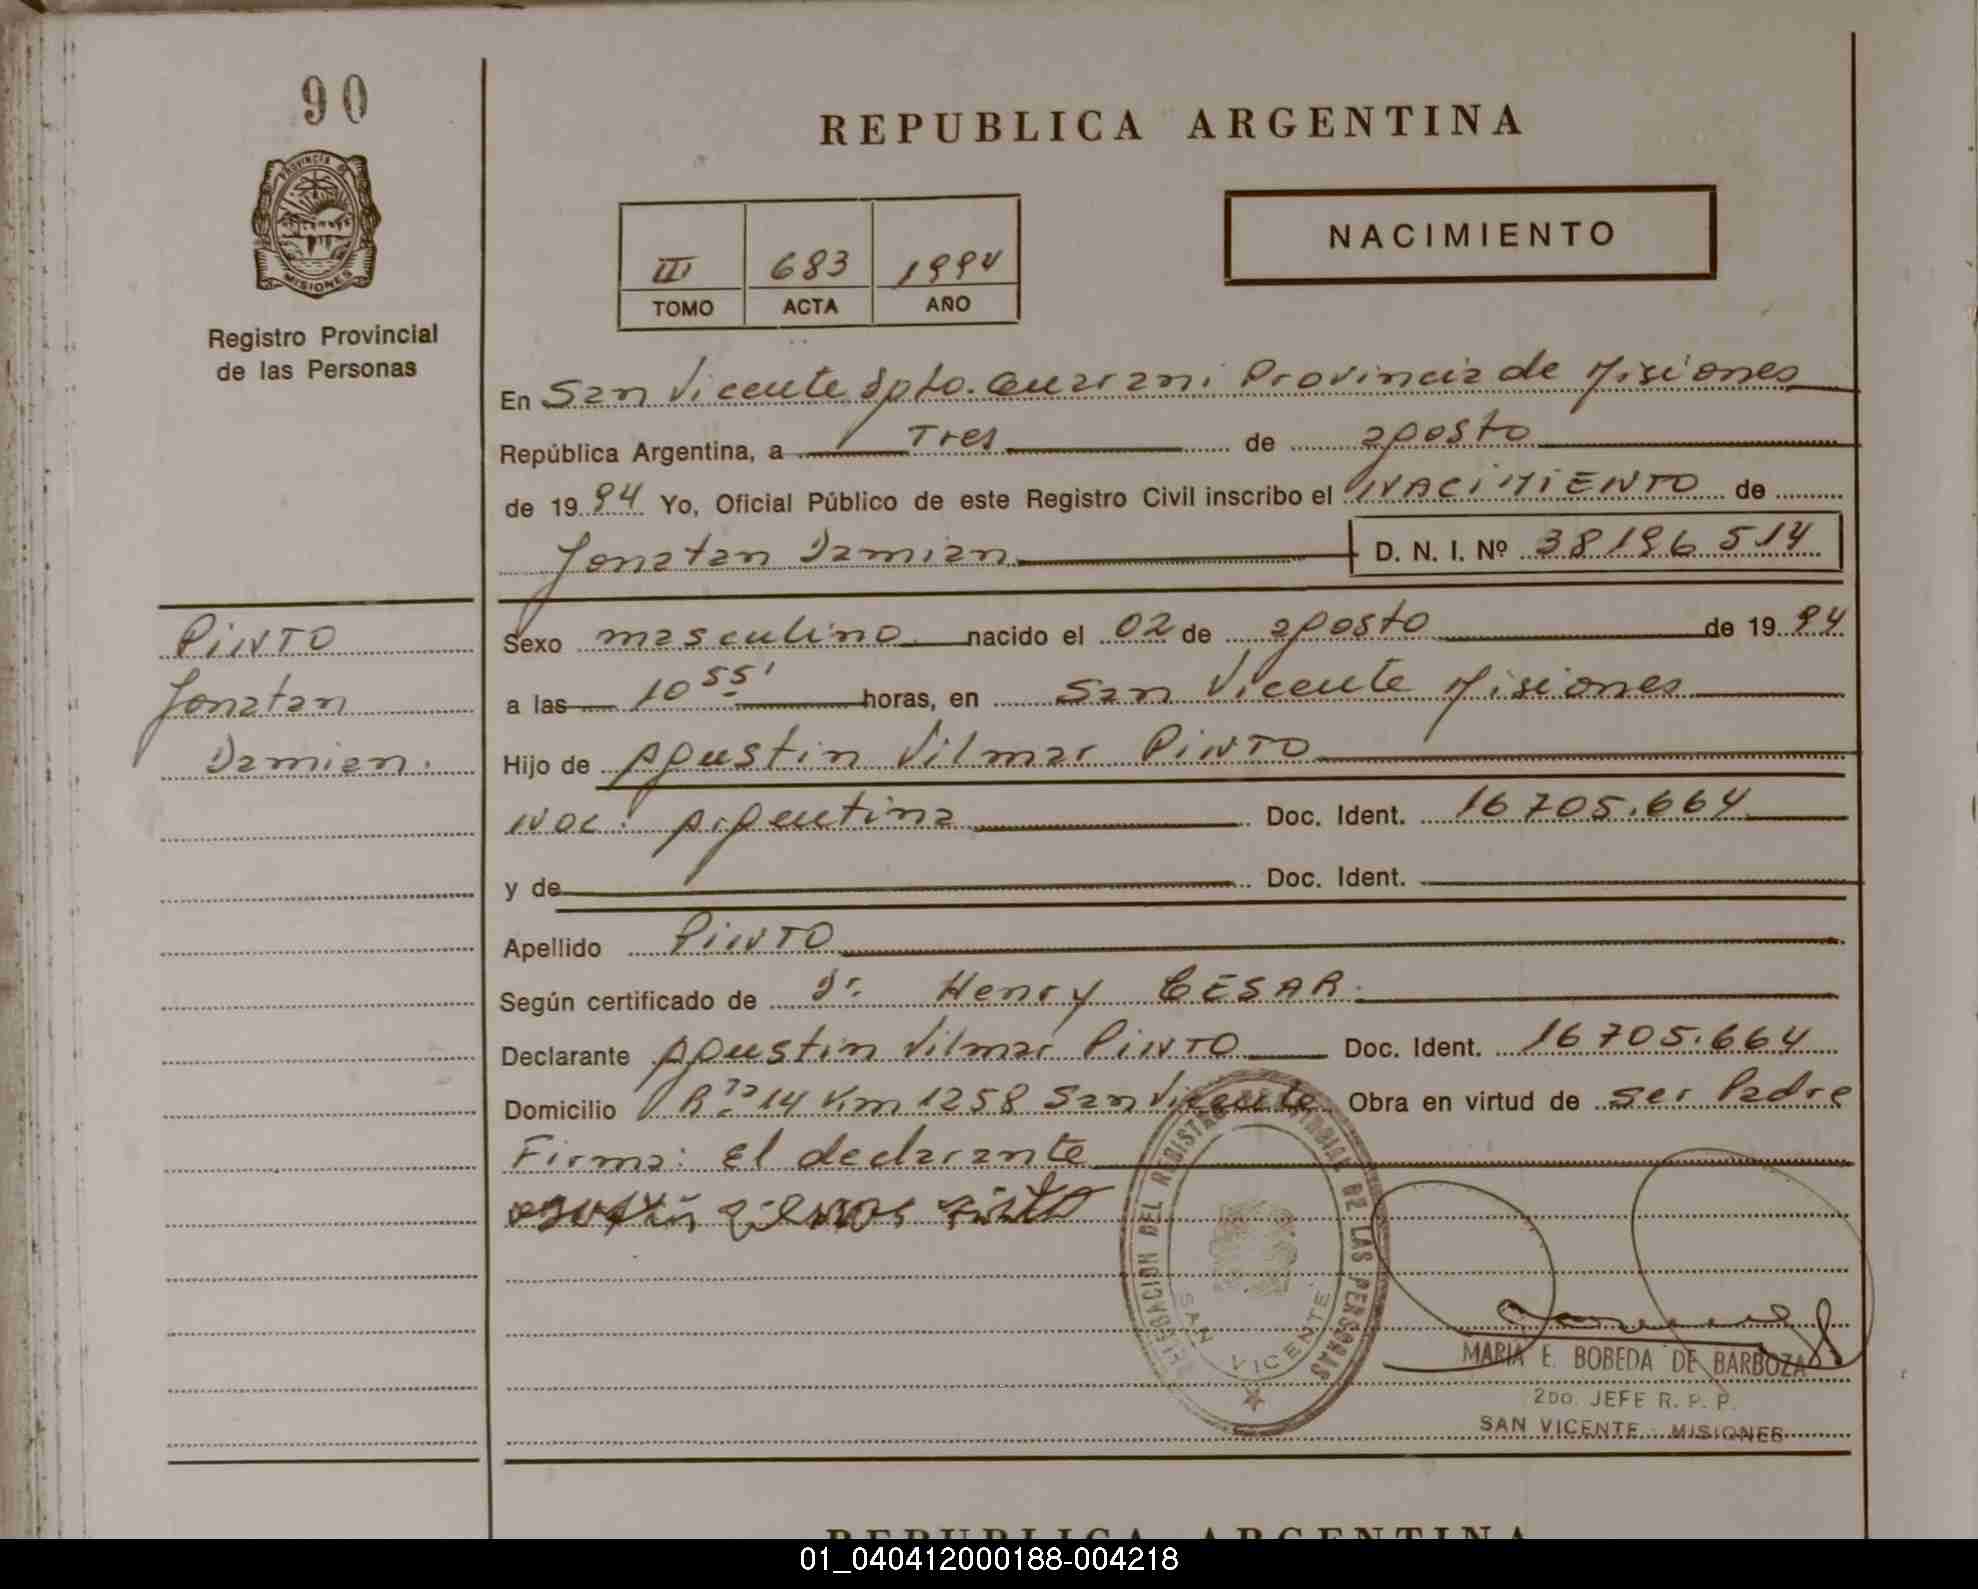 90
PROVINCIA DE
MISIONES
Registro Provincial
de las Personas
REPUBLICA ARGENTINA
III 683 1994
TOMO ACTA AÑO
NACIMIENTO
En San Vicente Dpto. Guarani Provincia de Misiones
República Argentina, a Tres de agosto
de 1994 Yo, Oficial Público de este Registro Civil inscribo el NACIMIENTO de
Jonatan Damian D. N. I. Nº 38196514
PINTO
Jonatan
Damian.
Sexo masculino nacido el 02 de agosto de 1994
a las 10 55' horas, en San Vicente Misiones
Hijo de Agustin Vilmar PINTO
Nac: Argentina Doc. Ident. 16705.664
y de Doc. Ident.
Apellido PINTO
Según certificado de Dr. Henry CESAR.
Declarante Agustin Vilmar PINTO Doc. Ident. 16705.664
Domicilio Rta 14 Km 1258 San Vicente Obra en virtud de ser Padre
Firma: El declarante
DELEGACION DEL REGISTRO PROVINCIAL DE LAS PERSONAS
SAN VICENTE
MARIA E. BOBEDA DE BARBOZA
2DO. JEFE R. P. P.
SAN VICENTE - MISIONES
REPUBLICA ARGENTINA
01_040412000188-004218